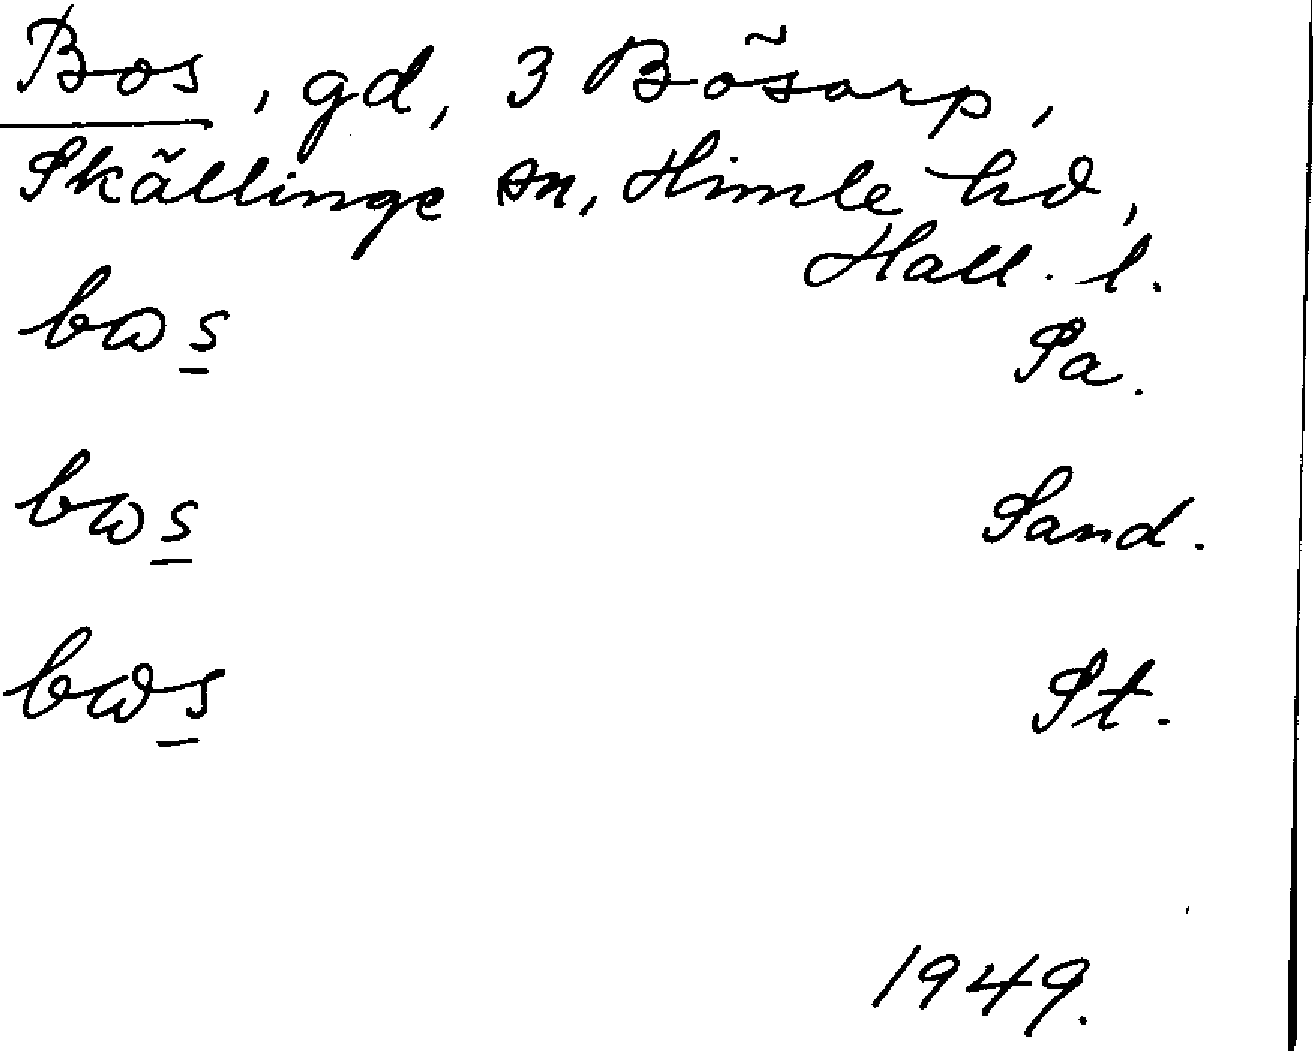 Bos, gd, 3 Bösarp,
Skällinge sn, Himle hd,
Hall. l.
bωs Sa.
bωs Sand.
bωs St.
1949.